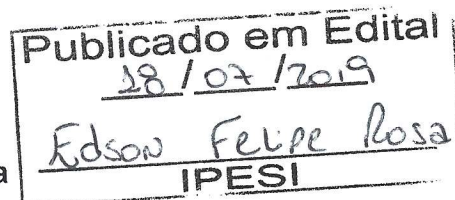 Publicado em Edital
18/07/2019
Edson Felipe Rosa
IPESI
a